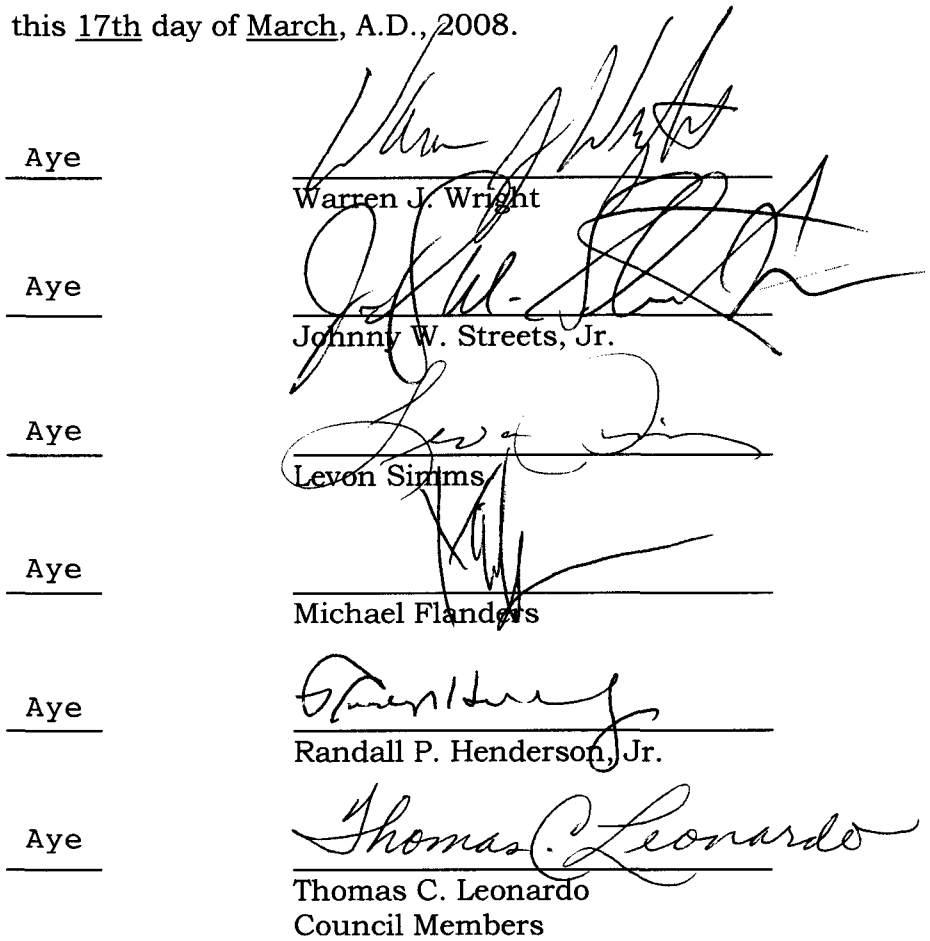 this 17th day of March, A.D., 2008.
Aye
Warren J. Wright
Aye
Johnny W. Streets, Jr.
Aye
Levon Simms
Aye
Michael Flanders
Aye
Randall P. Henderson, Jr.
Aye
Thomas C. Leonardo
Thomas C. Leonardo
Council Members